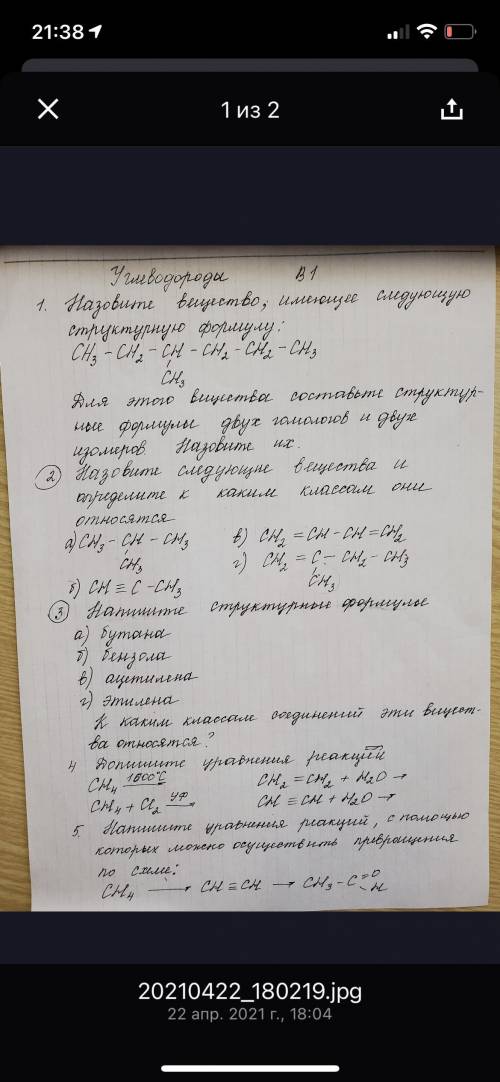 21:38
1 из 2
Углеводороды В1
1. Назовите вещество, имеющее следующую
структурную формулу:
CH₃ – CH₂ – CH – CH₂ – CH₂ – CH₃
CH₃
Для этого вещества составьте структур-
ные формулы двух гомологов и двух
изомеров. Назовите их.
2 Назовите следующие вещества и
определите к каким классам они
относятся
а) CH₃ – CH – CH₃ в) CH₂ = CH – CH = CH₂
CH₃ г) CH₂ = C – CH₂ – CH₃
б) CH ≡ C – CH₃ CH₃
3 Напишите структурные формулы
а) бутана
б) бензола
в) ацетилена
г) этилена
К каким классам соединений эти вещест-
ва относятся?
4 Допишите уравнения реакций
CH₄ 1500°C CH₂ = CH₂ + H₂O →
CH₄ + Cl₂ УФ CH ≡ CH + H₂O →
5. Напишите уравнения реакций, с помощью
которых можно осуществить превращения
по схеме:
CH₄ → CH ≡ CH → CH₃ – C =O –H
20210422_180219.jpg
22 апр. 2021 г., 18:04